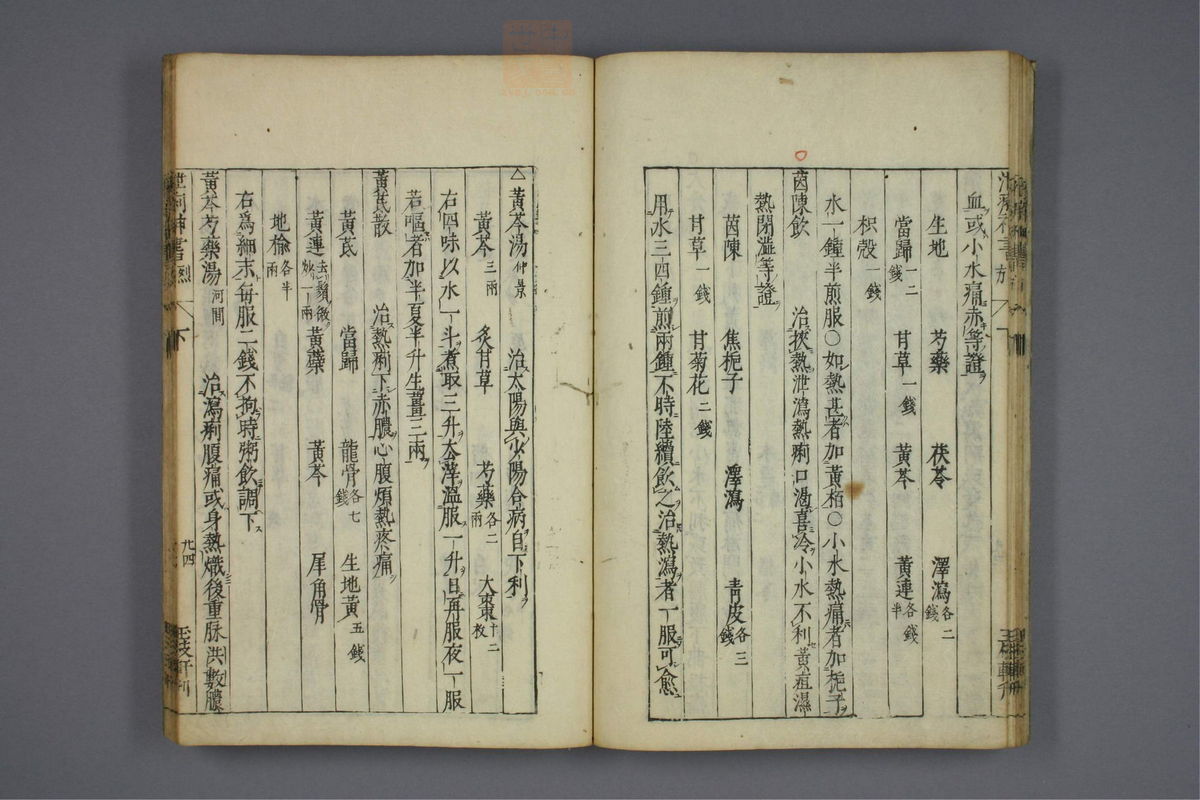 血或小水痛赤等證
生地 芍藥 茯苓 澤瀉各二錢
當歸一二錢 甘草一錢 黃芩 黃連各錢半
枳殼一錢
水一鐘半煎服○如熱甚者加黃栢○小水熱痛者加梔子
茵陳飲 治挾熱泄瀉熱痢口渴喜冷小水不利黃疸濕
熱閉澁等證
茵陳 焦梔子 澤瀉 青皮各三錢
甘草一錢 甘菊花二錢
用水三四鐘煎兩鐘不時陸續飲之治熱瀉者一服可愈
△黃芩湯仲景 治太陽與少陽合病自下利
黃芩三兩 炙甘草 芍藥各二兩 大棗十二枚
右四味以水一斗煮取三升去滓溫服一升日再服夜一服
若嘔者加半夏半升生薑三兩
黃芪散 治熱痢下赤膿心腹煩熱疼痛
黃芪 當歸 龍骨各七錢 生地黃五錢
黃連去鬚微炒一兩 黃蘗 黃芩 犀角屑
地榆各半兩
右爲細末每服二錢不拘時粥飲調下
黃芩芍藥湯河間 治瀉痢腹痛或身熱熾後重脉洪數膿
下